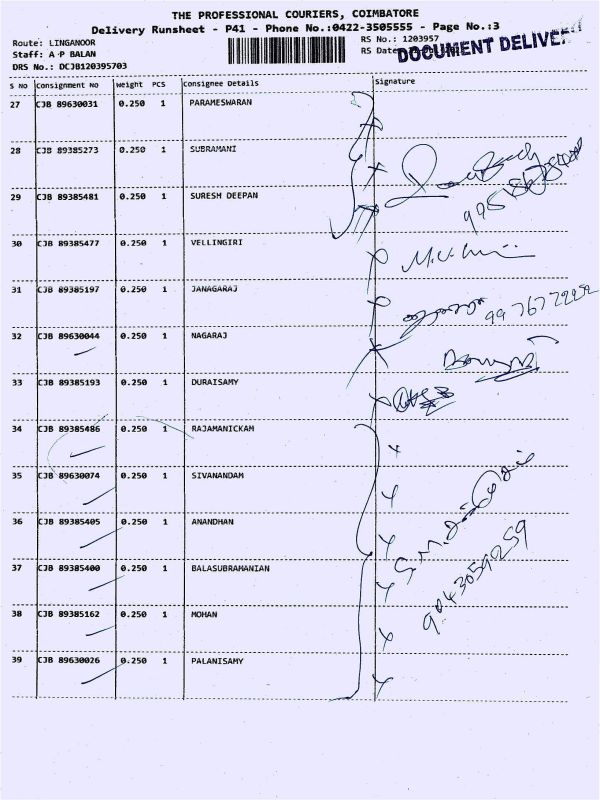 THE PROFESSIONAL COURIERS, COIMBATORE
Delivery Runsheet - P41 - Phone No.:0422-3505555 - Page No.:3
Route: LINGANOOR RS No.: 1203957
Staff: A P BALAN RS Date
DRS No.: DCJB120395703
DOCUMENT DELIVE
S No Consignment No Weight PCS Consignee Details Signature
27 CJB 89630031 0.250 1 PARAMESWARAN
28 CJB 89385273 0.250 1 SUBRAMANI
29 CJB 89385481 0.250 1 SURESH DEEPAN
30 CJB 89385477 0.250 1 VELLINGIRI
31 CJB 89385197 0.250 1 JANAGARAJ
32 CJB 89630044 0.250 1 NAGARAJ
33 CJB 89385193 0.250 1 DURAISAMY
34 CJB 89385486 0.250 1 RAJAMANICKAM
35 CJB 89630074 0.250 1 SIVANANDAM
36 CJB 89385405 0.250 1 ANANDHAN
37 CJB 89385400 0.250 1 BALASUBRAMANIAN
38 CJB 89385162 0.250 1 MOHAN
39 CJB 89630026 0.250 1 PALANISAMY
9043059259